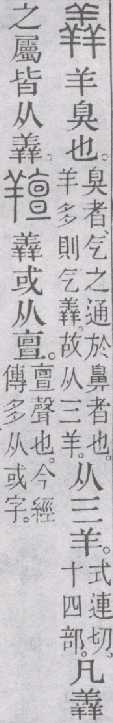 羴羊臭也。臭者、气之通於鼻者也。羊多則气羴。故从三羊。从三羊。式連切。十四部。凡羴
之屬皆从羴。羶羴或从亶。亶聲也。今經傳多从或字。